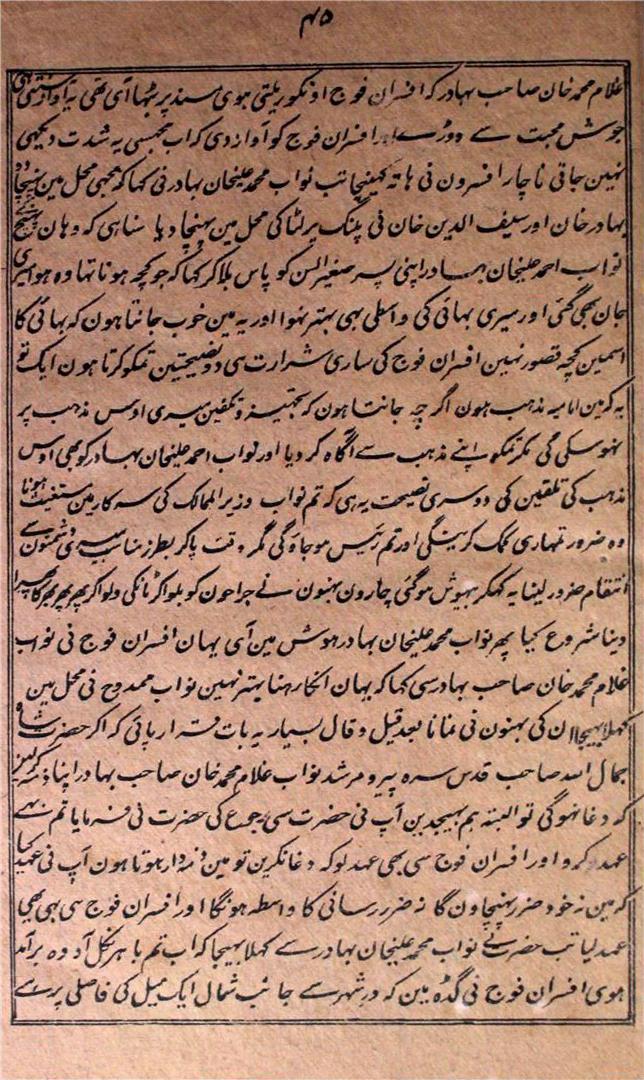 ۴۵
غلام محمد خان صاحب بہادر کہ افسران فوج اونکو ریلتی ہوی مسند پر بٹہا آی تھی یہ آواز سنتی ہی
جوش محبت سے دوڑے اور افسران فوج کو آواز دی کہ اب مجسی یہ شدت دیکہی
نہین جاتی ناچار افسرون نی ہاتہ کہینچا تب نواب محمد علیخان بہادر نی کہا کہ مجہی محل مین پہنچا دو
بہادر خان اور سیف الدین خان نی پلنگ پر لٹا کی محل مین پہنچا دیا سنا ہی کہ وہان پہنچ
نواب احمد علیخان بہادر اپنی پسر صغیر السن کو پاس بلا کر کہا کہ جو کچہ ہونا تہا وہ ہوا میری
جان بھی گئی اور میری بہائی کی واسطی بہی بہتر نہوا اور یہ مین خوب جانتا ہون کہ بہائی کا
اسمین کچہ قصور نہین افسران فوج کی ساری شرارت ہی دو نصیحتین تمکو کرتا ہون ایک تو
یہ کہ مین امامیہ مذہب ہون اگر چہ جانتا ہون کہ تجہیز و تکفین میری اوس مذہب پر
نہو سکی گی مگر تمکو اپنے مذہب سے آگاہ کر دیا اور نواب احمد علیخان بہادر کو بھی اوس
مذہب کی تلقین کی دوسری نصیحت یہ ہی کہ تم نواب وزیر الممالک کی سرکار مین مستغیث ہونا
وہ ضرور تمہاری کمک کرینگی اور تم رئیس ہو جاؤگی مگر وقت پا کر بطرز مناسب میری دشمنون سے
انتقام ضرور لینا یہ کہکر بیہوش ہو گئی چارون بہنون نے جراحون کو بلوا کر ٹانکی دلوا کر پہر پہر کا پہرا
دینا شروع کیا پھر نواب محمد علیخان بہادر ہوش مین آی یہان افسران فوج نی نواب
غلام محمد خان صاحب بہادر سی کہا کہ یہان انکا رہنا بہتر نہین نواب ممدوح نی محل مین
کہلا بہیجا ان کی بہنون نی نمانا بعد قیل و قال بسیار یہ بات قرار پائی کہ اگر حضرت شاہ
جمال اللہ صاحب قدس سرہ پیر و مرشد نواب غلام محمد خان صاحب بہادر اپنا ذمہ کر لین
کہ دغا نہوگی تو البتہ ہم بہیجدین آپ نی حضرت سی رجوع کی حضرت نی فرمایا تم بہی
عہد کرو اور افسران فوج سی بھی عہد لو کہ دغا نکرین تو مین ذمہ دار ہوتا ہون آپ نی عہد کیا
کہ مین نہ خود ضرر پہنچاون گا نہ ضرر رسانی کا واسطہ ہونگا اور افسران فوج سی بہی بھی
عہد لیا تب حضرت نے نواب محمد علیخان بہادر سے کہلا بہیجا کہ اب تم باہر نکل آؤ وہ برآمد
ہوی افسران فوج نی گڈہ مین کہ در شہر سے جانب شمال ایک میل کی فاصلی پر ہے